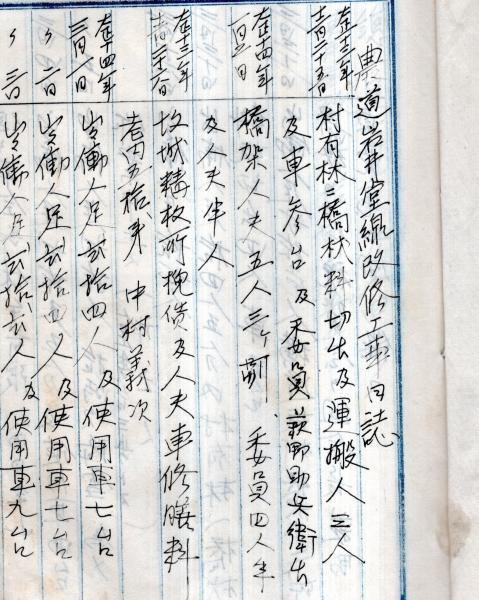 農道岩井堂線改修工事日誌
大正十三年
十二月二十五日
村有林ニ橋材料切出及運搬人三人
及車参台及委員萩野助兵衛出
大正十四年
一月三日
橋架人夫五人三ヶ前、委員四人半
及人夫半人
大正十三年
十二月二十六日
坂城精枚所挽賃及人夫車修膳料
老円五拾銭 中村義次
大正十四年
三月一日
出働人足弐拾四人及使用車七台
〃 二日
出働人足弐拾四人及使用車七台
〃 三日
出働人足弐拾弐人及使用車九台